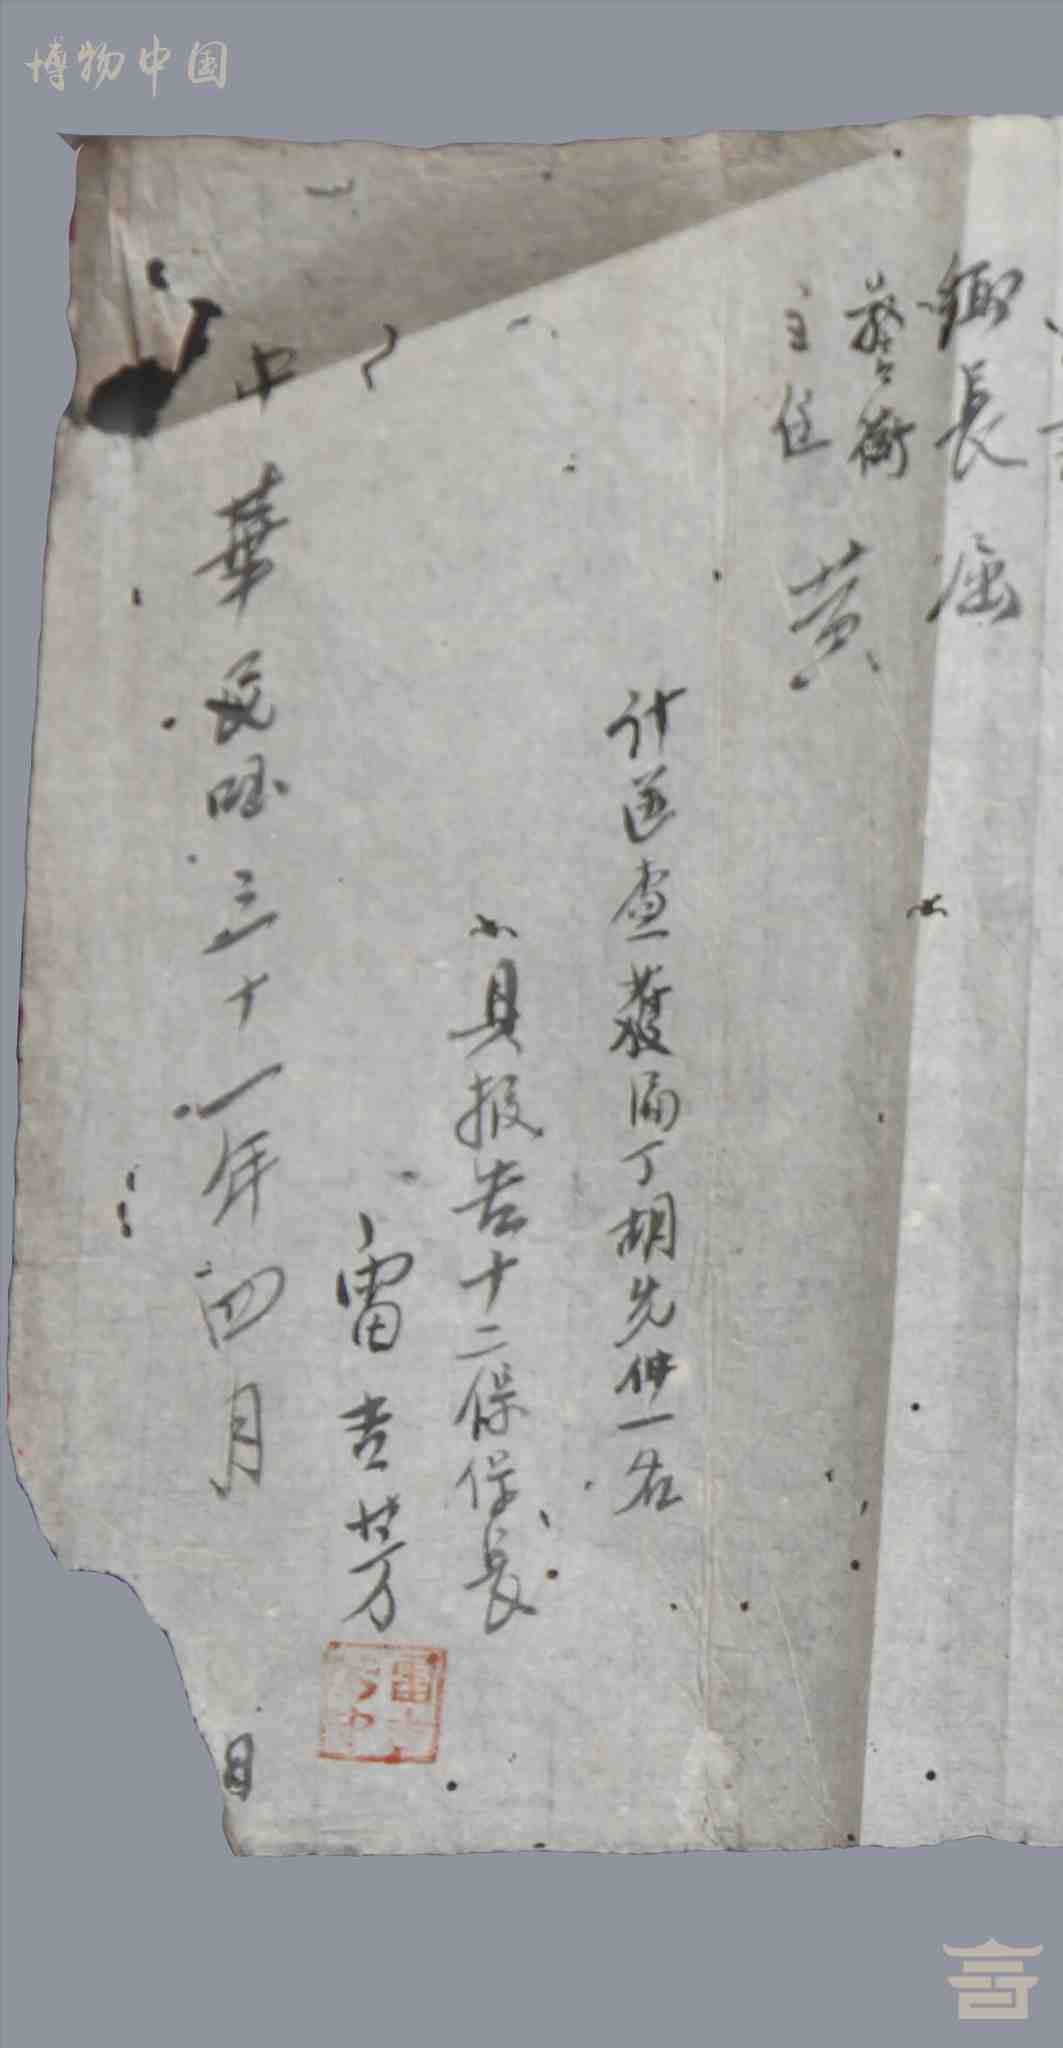 博物中国
鄉長 屈
警衛
主任 黃
計送查獲漏丁胡先伸一名
具報告十二保保長
雷吉芳
中華民國三十一年四月 日